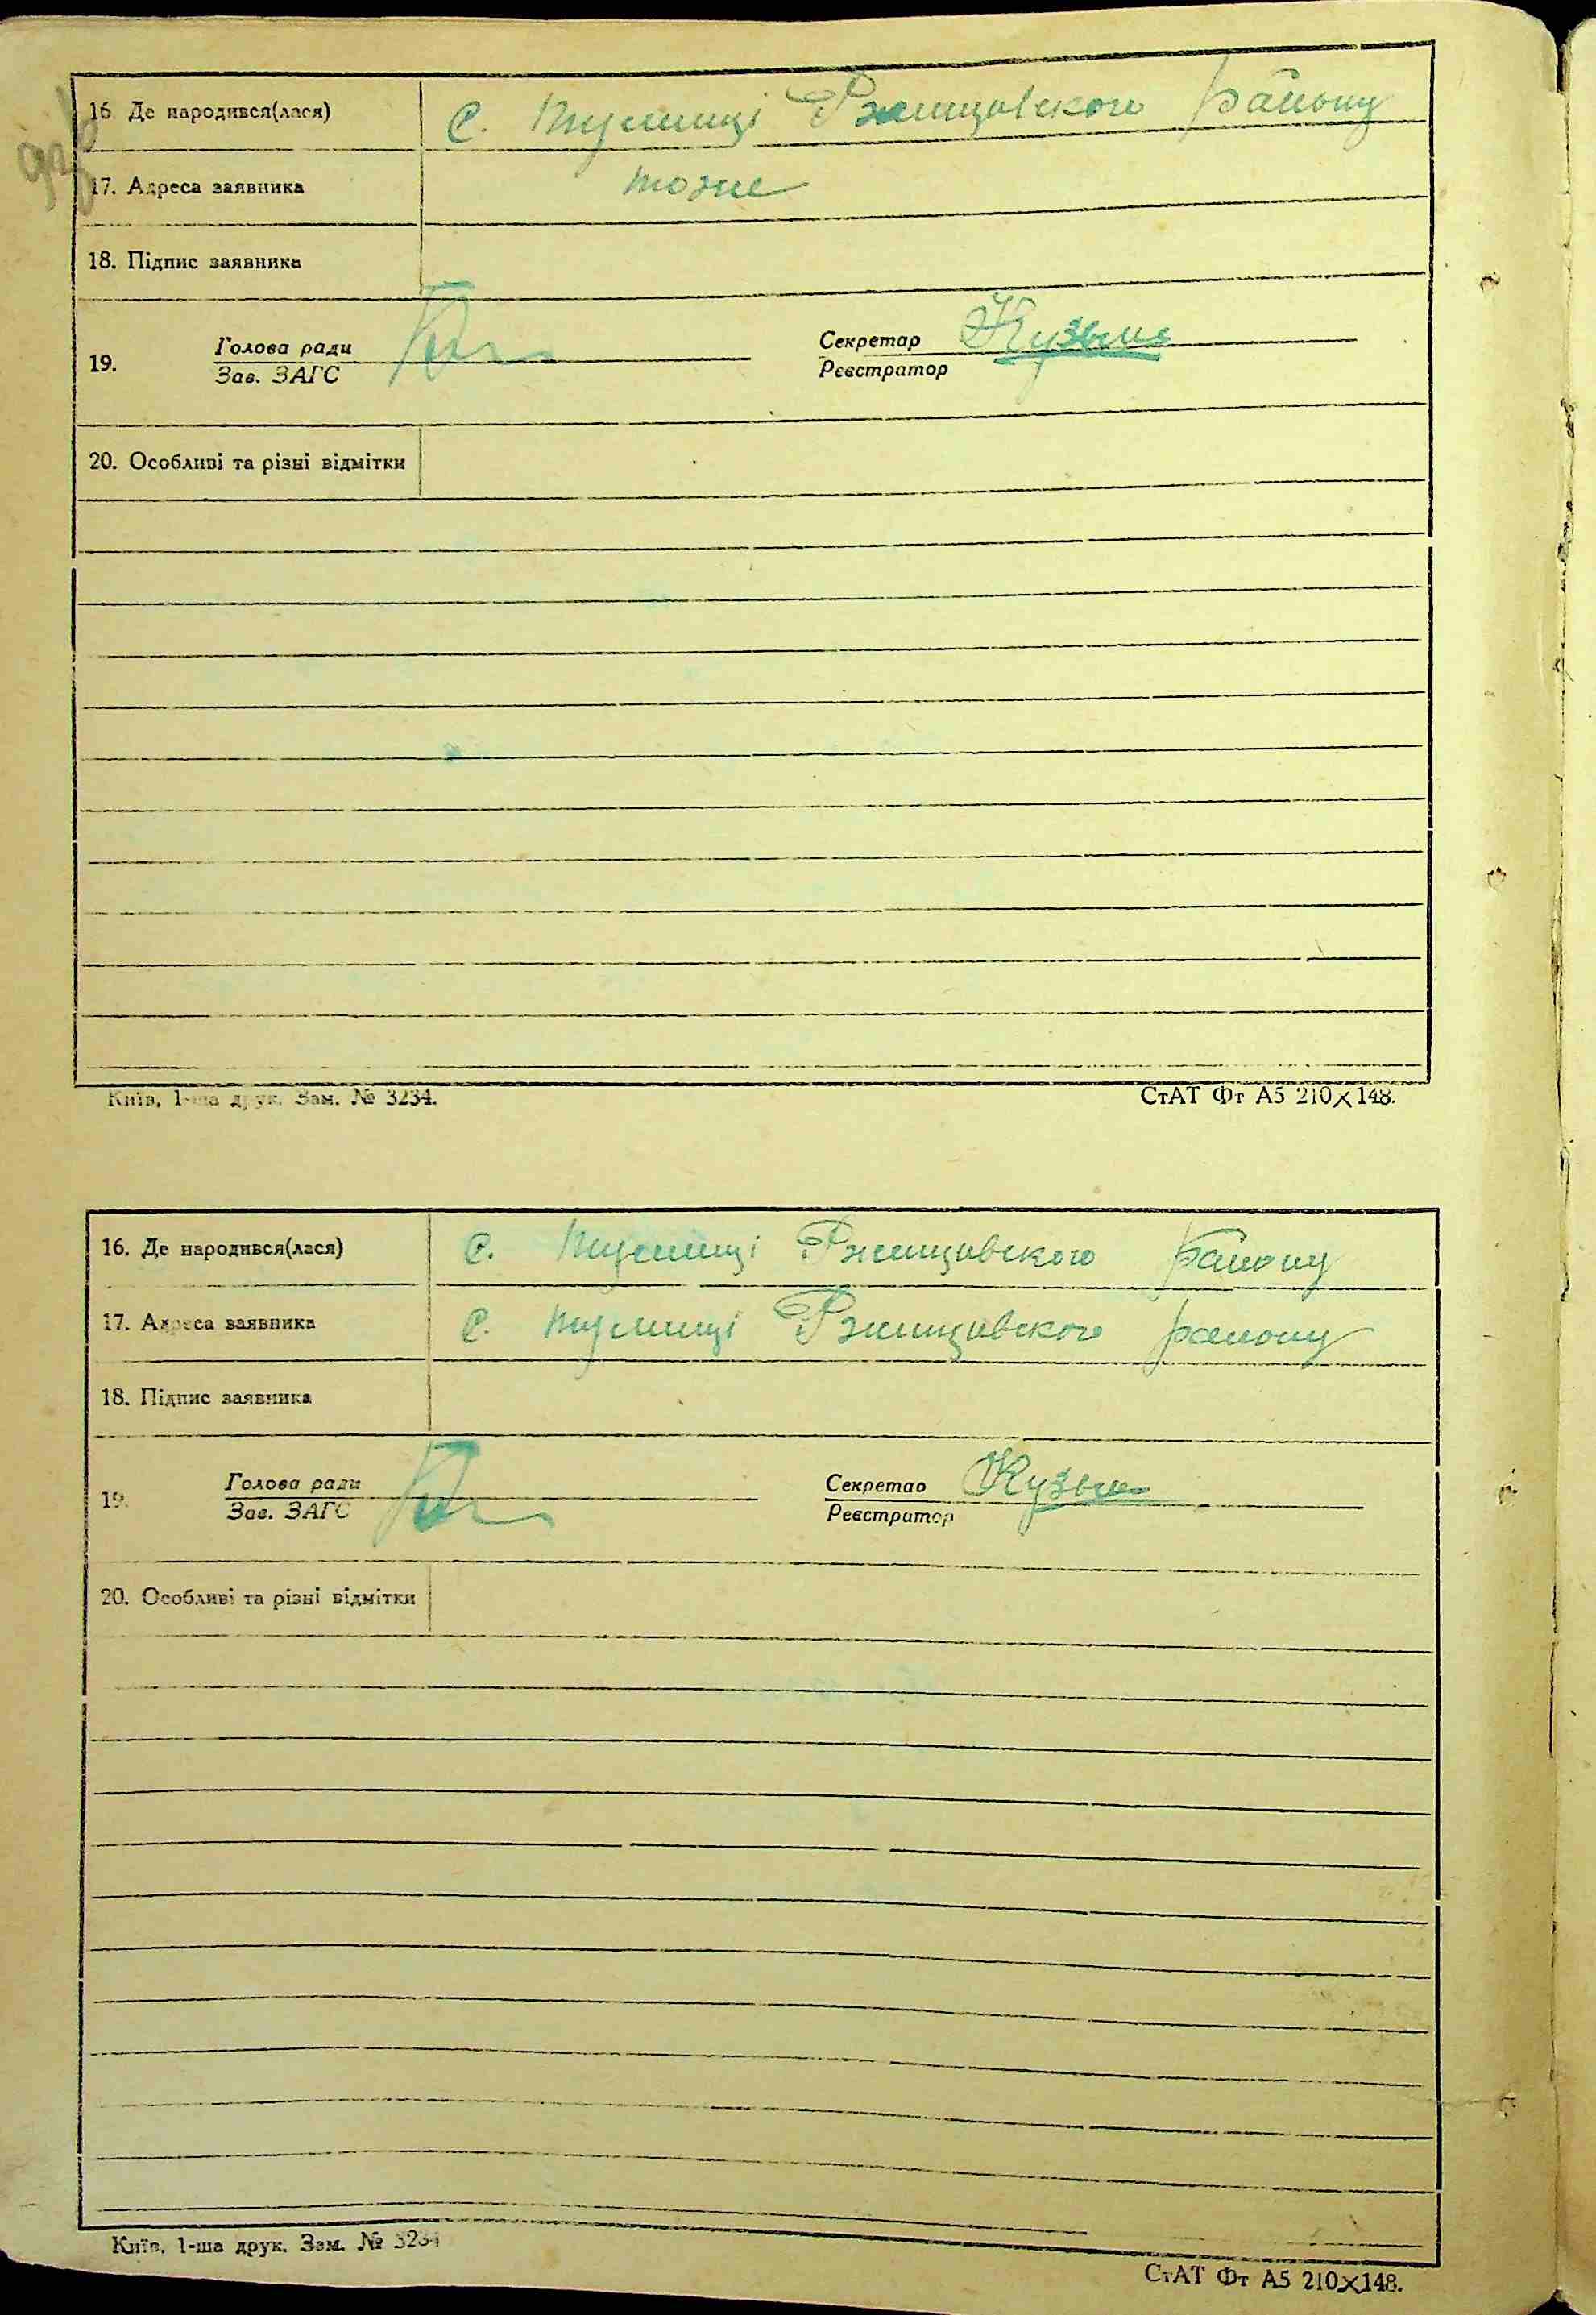 16. Де народився(лася) с. Тулинці Ржищівского району
17. Адреса заявника тоже
18. Підпис заявника
19. Голова ради Секретар Кузьм
Зав. ЗАГС Реєстратор
20. Особливі та різні відмітки
Київ, 1-ша друк. Зам. № 3234.
СтАТ Фт А5 210×148.
16. Де народився(лася) с. Тулинці Ржищівского району
17. Адреса заявника с. Тулинці Ржищівского району
18. Підпис заявника
19. Голова ради Секретар Кузьм
Зав. ЗАГС Реєстратор
20. Особливі та різні відмітки
Київ, 1-ша друк. Зам. № 3234
СтАТ Фт А5 210×148.